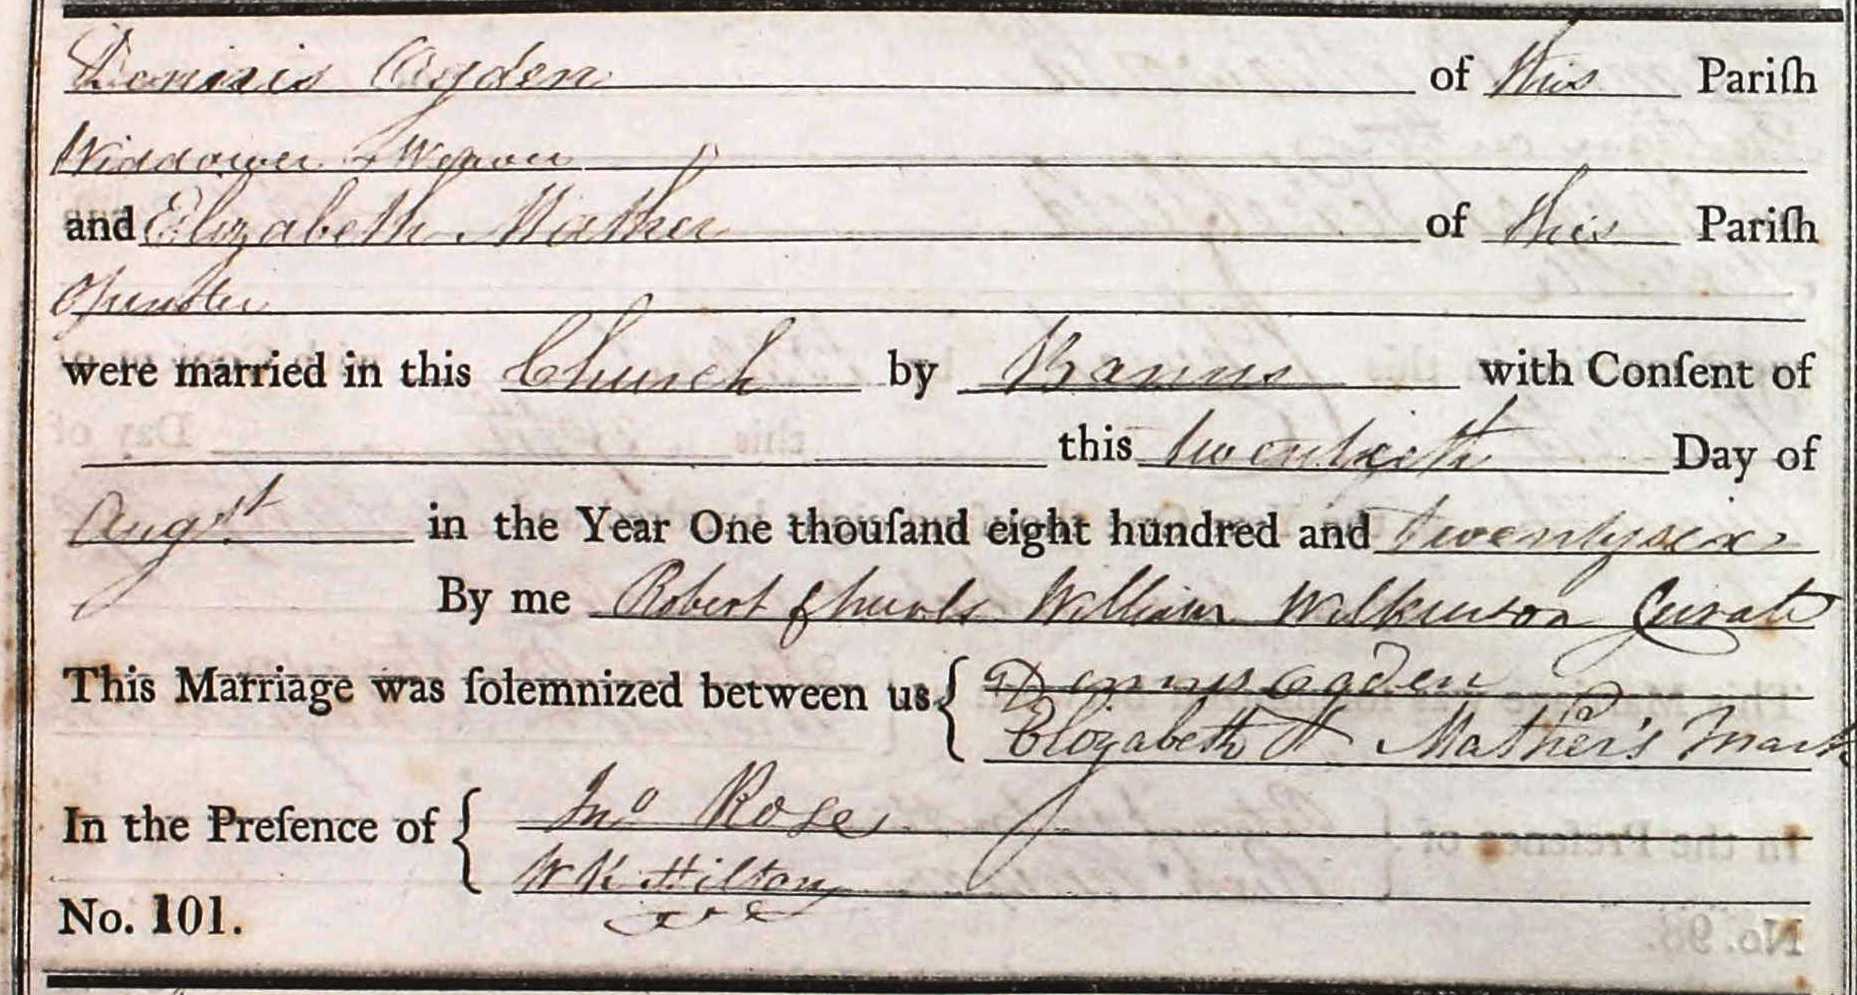 Dennis Ogden of this Pariſh
Widdower & Weaver
and Elizabeth Mather of this Pariſh
Spinster
were married in this Church by Banns with Conſent of
this twentieth Day of
Augst in the Year One thouſand eight hundred and twentysix
By me Robert William Wilkinson Curate
This Marriage was ſolemnized between us { Dennis Ogden
Elizabeth Mather's Mark
In the Preſence of { Jno Rose
W K Hilton
No. 101.